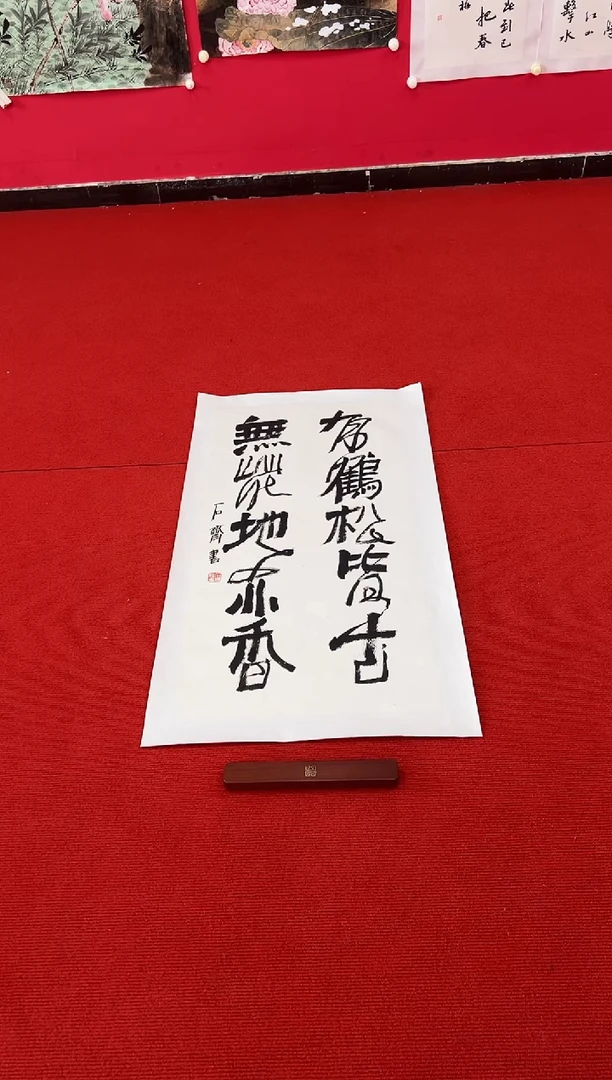 有鶴松皆古
無花地亦香
石齊書
江山
擊水
到已
把春